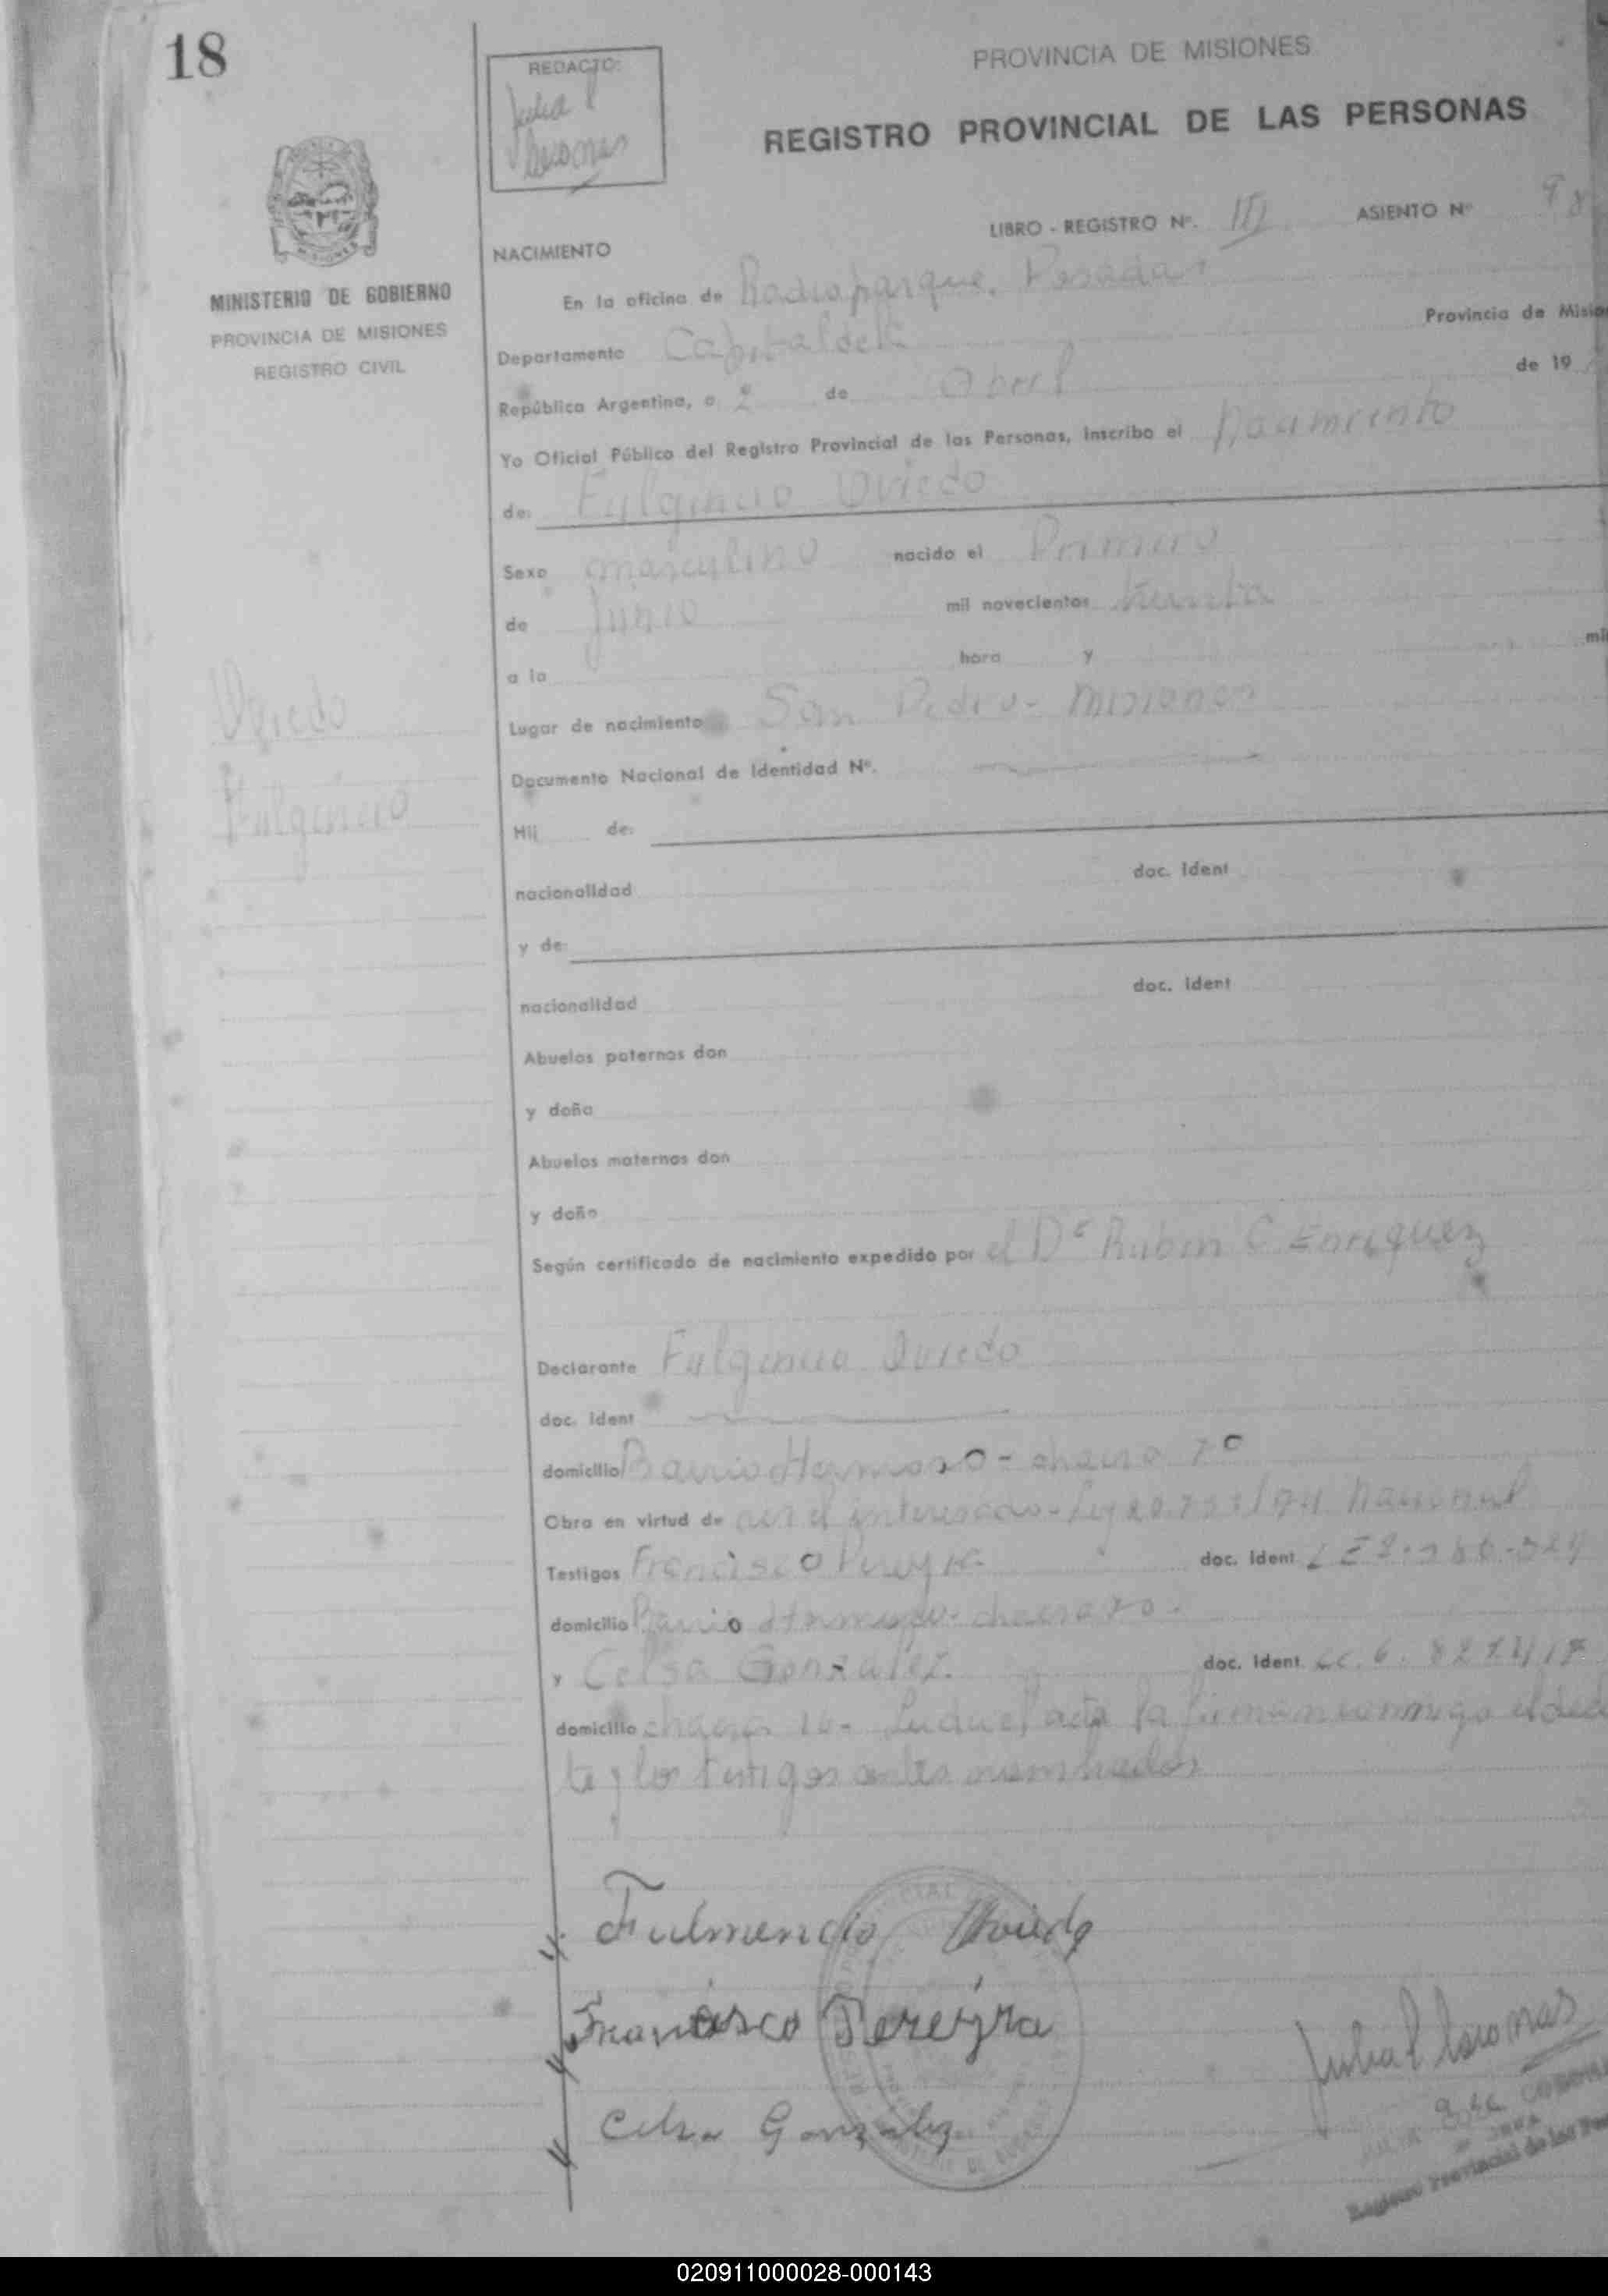 18
REDACTO:
PROVINCIA DE MISIONES
REGISTRO PROVINCIAL DE LAS PERSONAS
LIBRO - REGISTRO Nº. III ASIENTO Nº
MINISTERIO DE GOBIERNO
PROVINCIA DE MISIONES
REGISTRO CIVIL
NACIMIENTO
En la oficina de Radioparque, Posadas
Departamento Capital de la Provincia de Mision
República Argentina, a 2 de Abril de 19
Yo Oficial Público del Registro Provincial de las Personas, inscribo el Nacimiento
de: Fulgencio Oviedo
Sexo masculino nacido el Primero
de Junio mil novecientos treinta
a la hora y mi
Oviedo
Fulgencio
Lugar de nacimiento San Pedro - Misiones
Documento Nacional de Identidad Nº.
Hij de:
nacionalidad doc. Ident
y de:
nacionalidad doc. Ident
Abuelos paternos don
y doña
Abuelos maternos don
y doña
Según certificado de nacimiento expedido por el Dr Ruben C Enriquez
Declarante Fulgencio Oviedo
doc. Ident
domicilio Barrio Hermoso - chacra 70
Obra en virtud de Ley Nacional
Testigos Francisco Pereyra doc. Ident
domicilio Barrio Hermoso - chacra 70.
y Celsa Gonzalez. doc. Ident
domicilio chacra Leida el acta la firman conmigo el decl
te y los testigos antes nombrados
Fulmencio Oviedo
Francisco Pereyra
Celsa Gonzalez
Registro Provincial de las Per
020911000028-000143